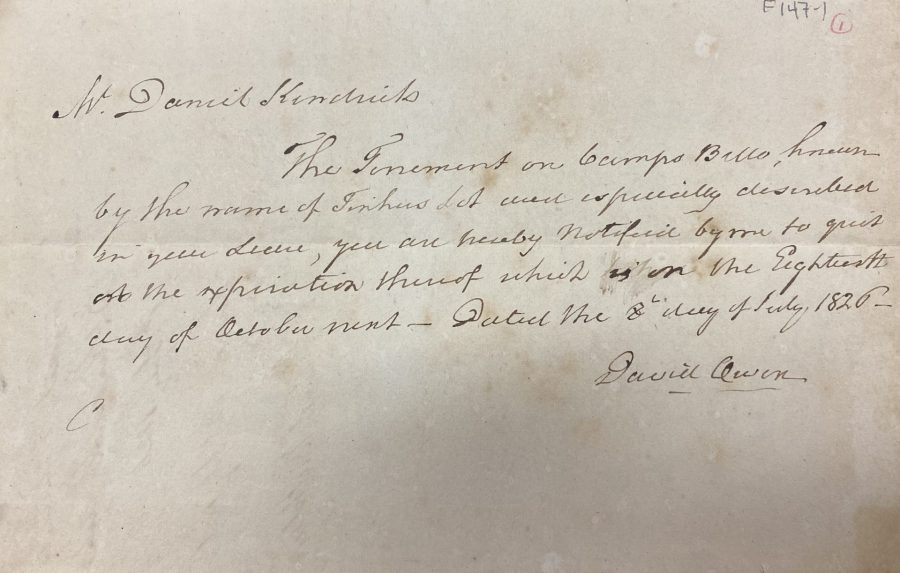 F147-1 1
Mr. Daniel Kendrick
The Tenement on Camps Bello, known
by the name of Tinkers Lot and especially described
in your Lease, you are hereby Notified by me to quit
at the expiration thereof which is on the Eighteenth
day of October next — Dated the 8th day of July 1826 —
David Owen
C